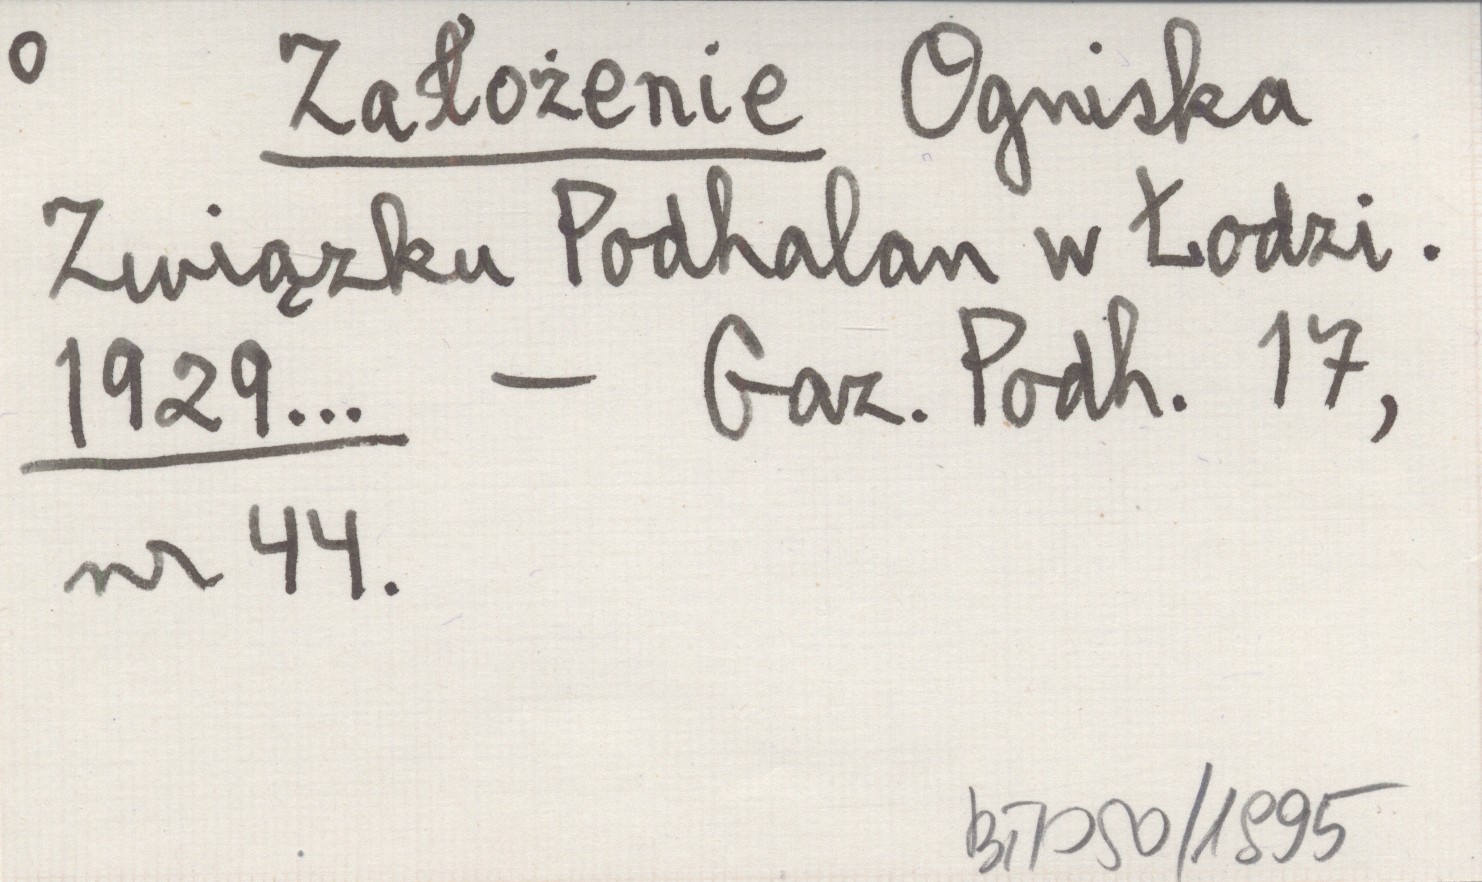 o Założenie Ogniska
Związku Podhalan w Łodzi.
1929... — Gaz. Podh. 17,
nr 44.
BTPSO/1895